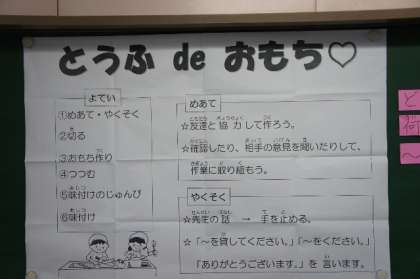 とうふ de おもち♡
よてい
①めあて・やくそく
②切る
③おもち作り
④つつむ
⑤味付けのじゅんび
⑥味付け
めあて
☆友達と協力して作ろう。
☆確認したり、相手の意見を聞いたりして、
作業に取り組もう。
やくそく
☆先生の話 → 手を止める。
「～を貸してください。」「～をください。」
「ありがとうございます。」を言います。
と
～